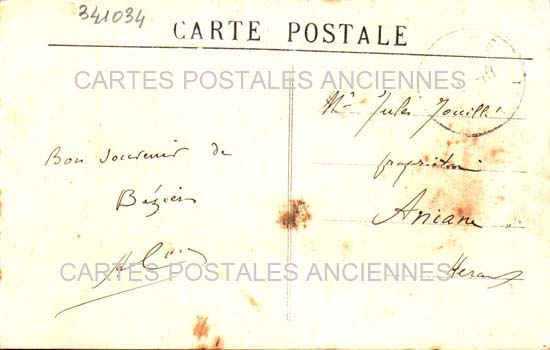 341034
CARTE POSTALE
CARTES POSTALES ANCIENNES
Bon souvenir de
Béziers
Mr Jules Jouillé
propriétaire
Aniane
Herault
CARTES POSTALES ANCIENNES